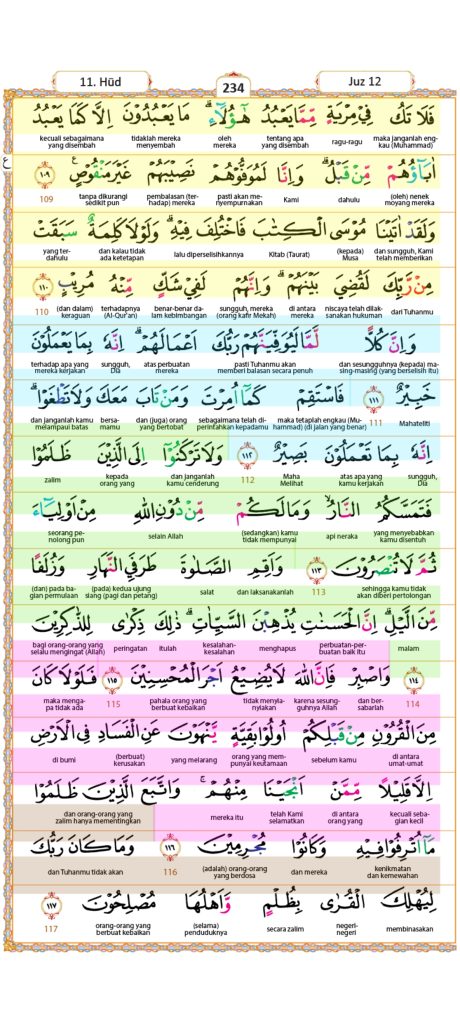 11. Hūd 234 Juz 12
فَلَا تَكُ فِيْ مِرْيَةٍ مِّمَّا يَعْبُدُ هٰٓؤُلَاۤءِ ۗ مَا يَعْبُدُوْنَ اِلَّا كَمَا يَعْبُدُ
maka janganlah engkau (Muhammad) ragu-ragu tentang apa yang disembah oleh mereka tidaklah mereka menyembah kecuali sebagaimana yang disembah
ع
اٰبَاۤؤُهُمْ مِّنْ قَبْلُ ۗ وَاِنَّا لَمُوَفُّوْهُمْ نَصِيْبَهُمْ غَيْرَ مَنْقُوْصٍ ١٠٩
(oleh) nenek moyang mereka dahulu Kami pasti akan menyempurnakan pembalasan (terhadap) mereka tanpa dikurangi sedikit pun 109
وَلَقَدْ اٰتَيْنَا مُوْسَى الْكِتٰبَ فَاخْتُلِفَ فِيْهِ ۗ وَلَوْلَا كَلِمَةٌ سَبَقَتْ
dan sungguh, Kami telah memberikan (kepada) Musa Kitab (Taurat) lalu diperselisihkannya dan kalau tidak ada ketetapan yang terdahulu
مِنْ رَّبِّكَ لَقُضِيَ بَيْنَهُمْ ۗ وَاِنَّهُمْ لَفِيْ شَكٍّ مِّنْهُ مُرِيْبٍ ١١٠
dari Tuhanmu niscaya telah dilaksanakan hukuman di antara mereka sungguh, mereka (orang kafir Mekah) benar-benar dalam kebimbangan terhadapnya (Al-Qur'an) (dan dalam) keraguan 110
وَاِنَّ كُلًّا لَّمَّا لَيُوَفِّيَنَّهُمْ رَبُّكَ اَعْمَالَهُمْ ۗ اِنَّهٗ بِمَا يَعْمَلُوْنَ
dan sesungguhnya (kepada) masing-masing (yang berselisih itu) pasti Tuhanmu akan memberi balasan secara penuh atas perbuatan mereka sungguh, Dia terhadap apa yang mereka kerjakan
خَبِيْرٌ ١١١ فَاسْتَقِمْ كَمَآ اُمِرْتَ وَمَنْ تَابَ مَعَكَ وَلَا تَطْغَوْا ۗ
Mahateliti 111 maka tetaplah engkau (Muhammad) (di jalan yang benar) sebagaimana telah diperintahkan kepadamu dan (juga) orang yang bertobat bersamamu dan janganlah kamu melampaui batas
اِنَّهٗ بِمَا تَعْمَلُوْنَ بَصِيْرٌ ١١٢ وَلَا تَرْكَنُوْٓا اِلَى الَّذِيْنَ ظَلَمُوْا
sungguh, Dia atas apa yang kamu kerjakan Maha Melihat 112 dan janganlah kamu cenderung kepada orang yang zalim
فَتَمَسَّكُمُ النَّارُ ۙ وَمَا لَكُمْ مِّنْ دُوْنِ اللّٰهِ مِنْ اَوْلِيَاۤءَ
yang menyebabkan kamu disentuh api neraka (sedangkan) kamu tidak mempunyai selain Allah seorang penolong pun
ثُمَّ لَا تُنْصَرُوْنَ ١١٣ وَاَقِمِ الصَّلٰوةَ طَرَفَيِ النَّهَارِ وَزُلَفًا
sehingga kamu tidak akan diberi pertolongan 113 dan laksanakanlah salat (pada) kedua ujung siang (pagi dan petang) (dan) pada bagian permulaan
مِّنَ الَّيْلِ ۗ اِنَّ الْحَسَنٰتِ يُذْهِبْنَ السَّيِّاٰتِ ۗ ذٰلِكَ ذِكْرٰى لِلذّٰكِرِيْنَ
malam perbuatan-perbuatan baik itu menghapus kesalahan-kesalahan itulah peringatan bagi orang-orang yang selalu mengingat (Allah)
١١٤ وَاصْبِرْ فَاِنَّ اللّٰهَ لَا يُضِيْعُ اَجْرَ الْمُحْسِنِيْنَ ١١٥ فَلَوْلَا كَانَ
114 dan bersabarlah karena sesungguhnya Allah tidak menyianyiakan pahala orang yang berbuat kebaikan 115 maka mengapa tidak ada
مِنَ الْقُرُوْنِ مِنْ قَبْلِكُمْ اُولُوْا بَقِيَّةٍ يَّنْهَوْنَ عَنِ الْفَسَادِ فِى الْاَرْضِ
di antara umat-umat sebelum kamu orang yang mempunyai keutamaan yang melarang (berbuat) kerusakan di bumi
اِلَّا قَلِيْلًا مِّمَّنْ اَنْجَيْنَا مِنْهُمْ ۚ وَاتَّبَعَ الَّذِيْنَ ظَلَمُوْا
kecuali sebagian kecil di antara orang yang telah Kami selamatkan mereka itu dan orang-orang yang zalim hanya mementingkan
مَآ اُتْرِفُوْا فِيْهِ وَكَانُوْا مُجْرِمِيْنَ ١١٦ وَمَا كَانَ رَبُّكَ
kenikmatan dan kemewahan dan mereka (adalah) orang-orang yang berdosa 116 dan Tuhanmu tidak akan
لِيُهْلِكَ الْقُرٰى بِظُلْمٍ وَّاَهْلُهَا مُصْلِحُوْنَ ١١٧
membinasakan negeri-negeri secara zalim (selama) penduduknya orang-orang yang berbuat kebaikan 117